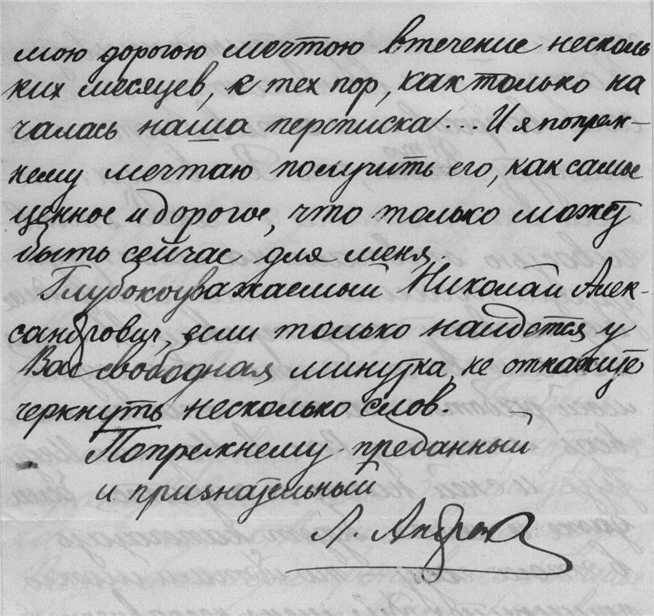 мою дорогою мечтою втечение несколь
ких месяцев, с тех пор, как только на
чалась наша переписка... И я попреж-
нему мечтаю получить его, как самое
ценное и дорогое, что только может
быть сейчас для меня.
Глубокоуважаемый Николай Алек-
сандрович, если только найдется у
Вас свободная минутка, не откажите
черкнуть несколько слов.
Попрежнему преданный
и признательный
Л.